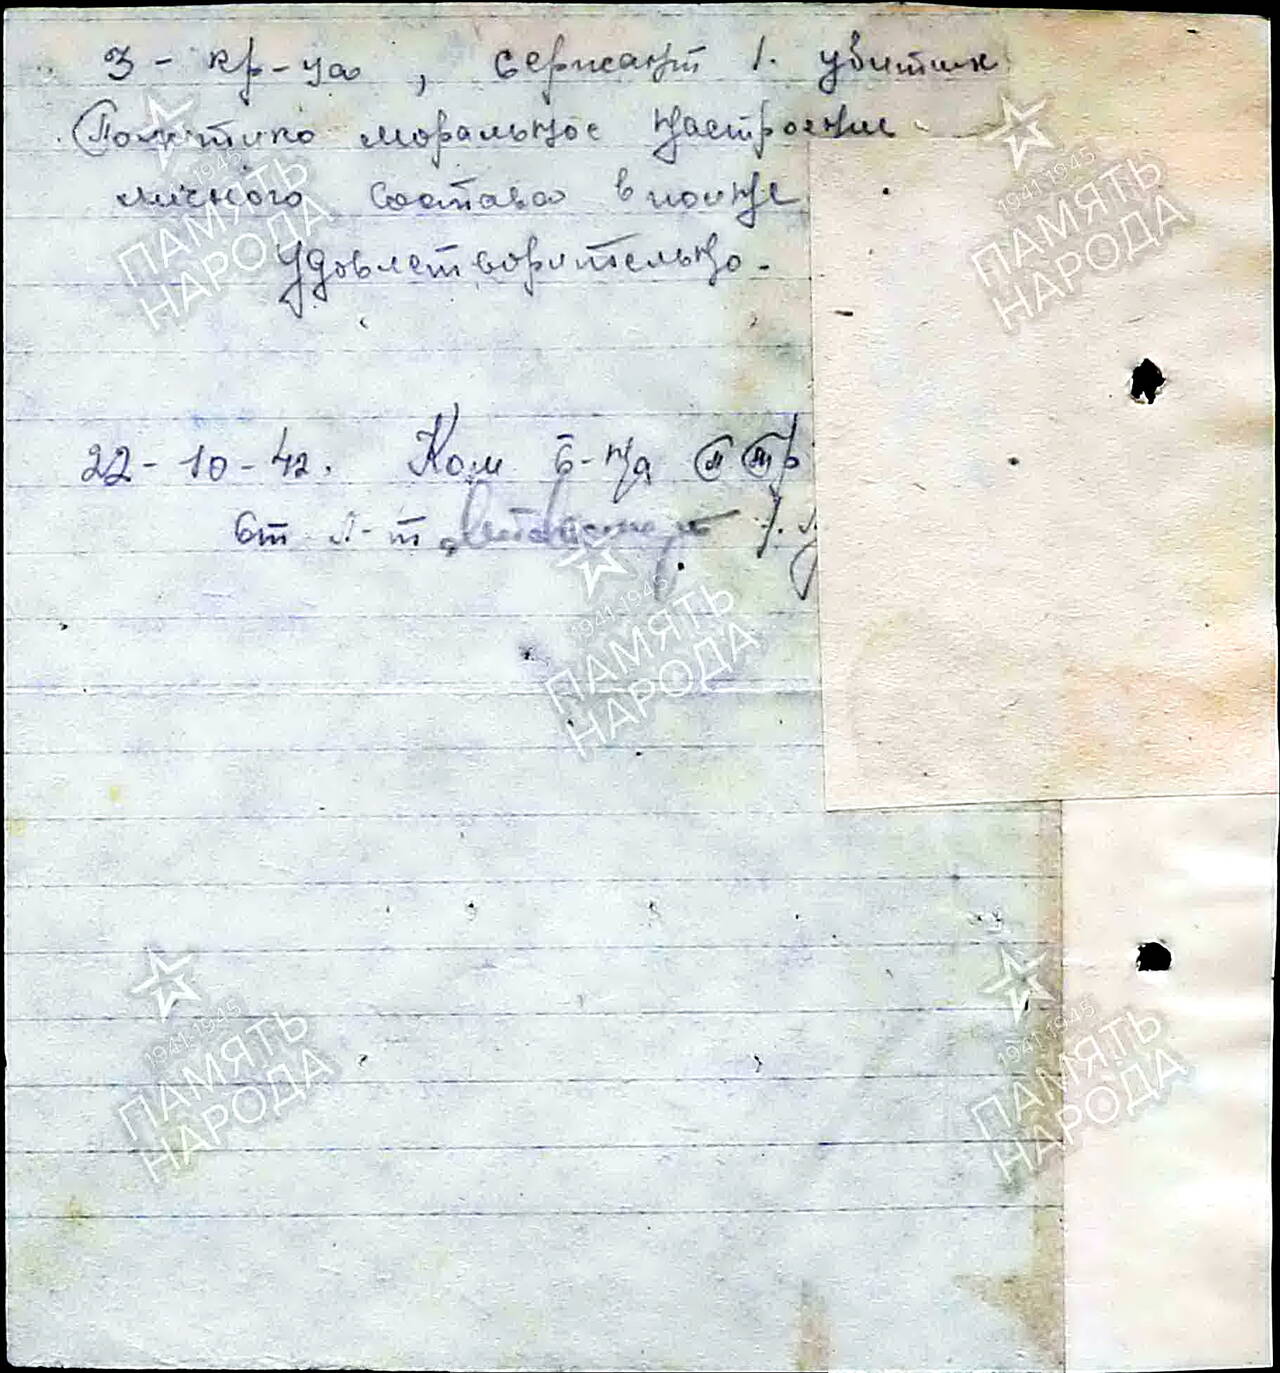 3 - кр-ца, сержант 1. убитых
Политико моральное настроение
личного состава в полне
удовлетворительно.
22-10-42. Ком б-на
ст л-т
1941-1945
ПАМЯТЬ
НАРОДА
1941-1945
ПАМЯТЬ
НАРОДА
1941-1945
ПАМЯТЬ
НАРОДА
1941-1945
ПАМЯТЬ
НАРОДА
1941-1945
ПАМЯТЬ
НАРОДА